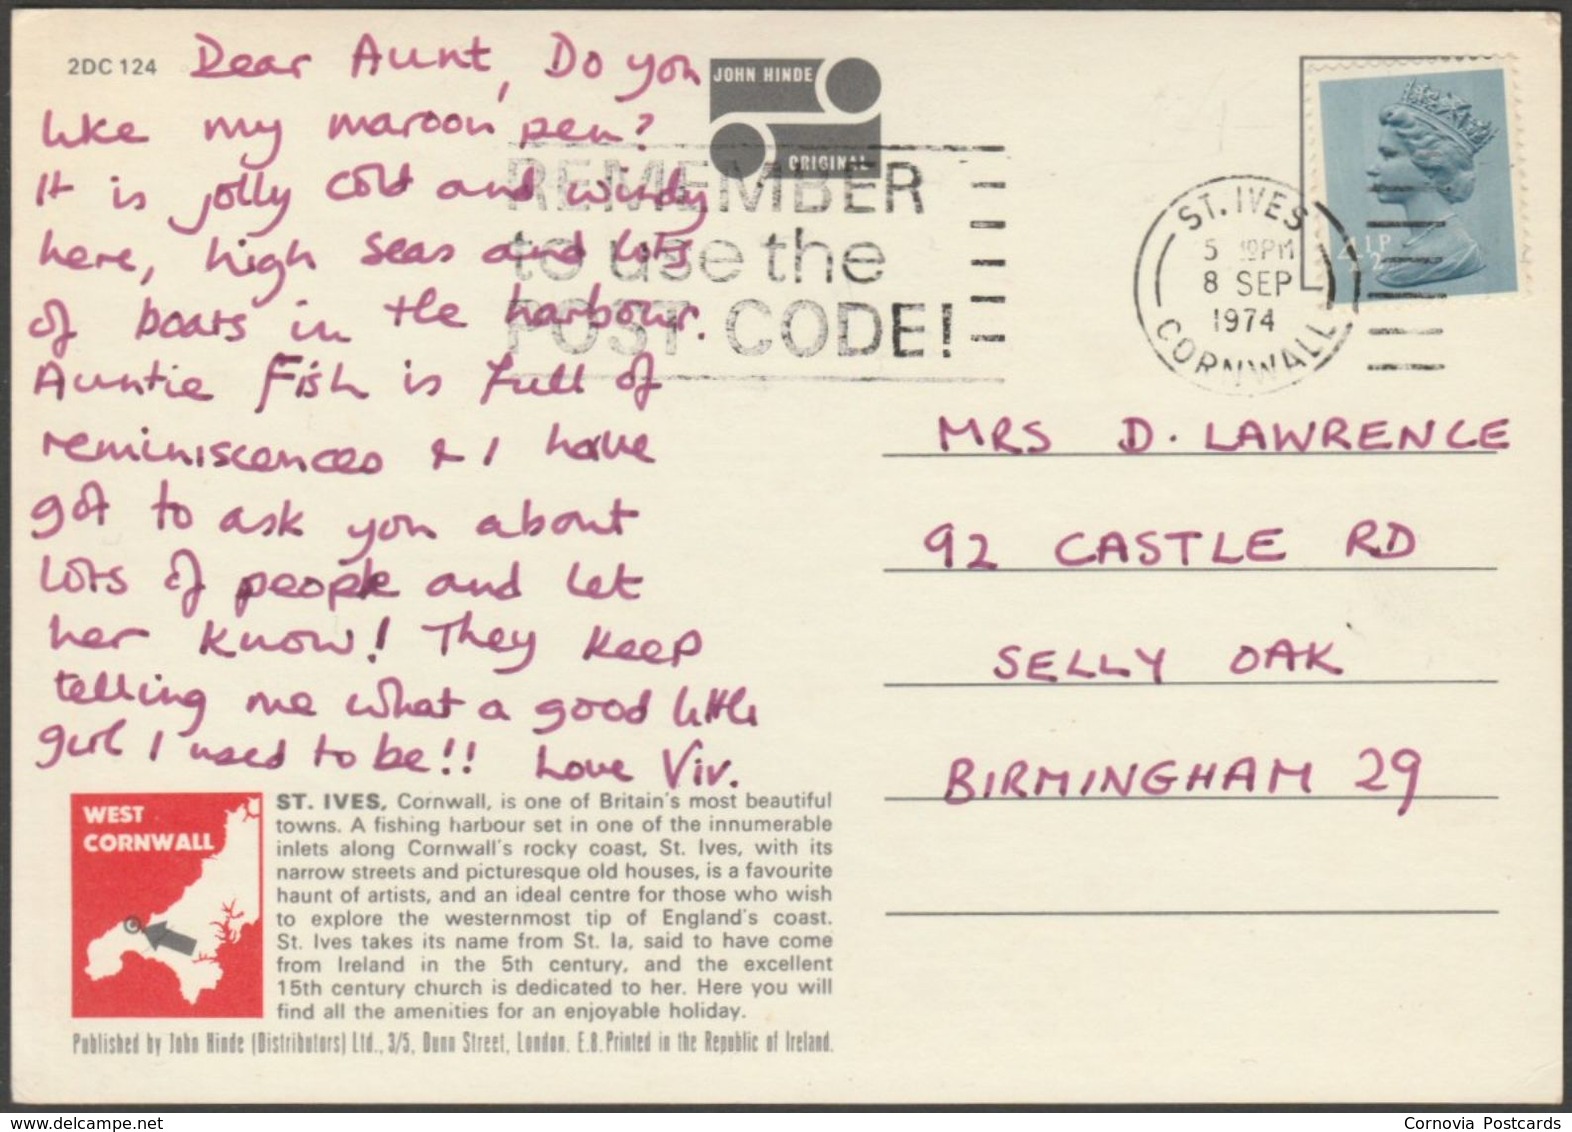 2DC 124
Dear Aunt, Do you
like my maroon pen?
It is jolly cold and windy
here, high seas and lots
of boats in the harbour.
Auntie Fish is full of
reminiscences & I have
got to ask you about
lots of people and let
her know! They keep
telling me what a good little
girl I used to be!! Love Viv.
JOHN HINDE
ORIGINAL
REMEMBER
to use the
POST CODE!
ST. IVES
5 PM
8 SEP
1974
CORNWALL
4½P
MRS D. LAWRENCE
92 CASTLE RD
SELLY OAK
BIRMINGHAM 29
WEST
CORNWALL
ST. IVES, Cornwall, is one of Britain's most beautiful
towns. A fishing harbour set in one of the innumerable
inlets along Cornwall's rocky coast, St. Ives, with its
narrow streets and picturesque old houses, is a favourite
haunt of artists, and an ideal centre for those who wish
to explore the westernmost tip of England's coast.
St. Ives takes its name from St. Ia, said to have come
from Ireland in the 5th century, and the excellent
15th century church is dedicated to her. Here you will
find all the amenities for an enjoyable holiday.
Published by John Hinde (Distributors) Ltd., 3/5, Dunn Street, London. E.8. Printed in the Republic of Ireland.
Cornovia Postcards